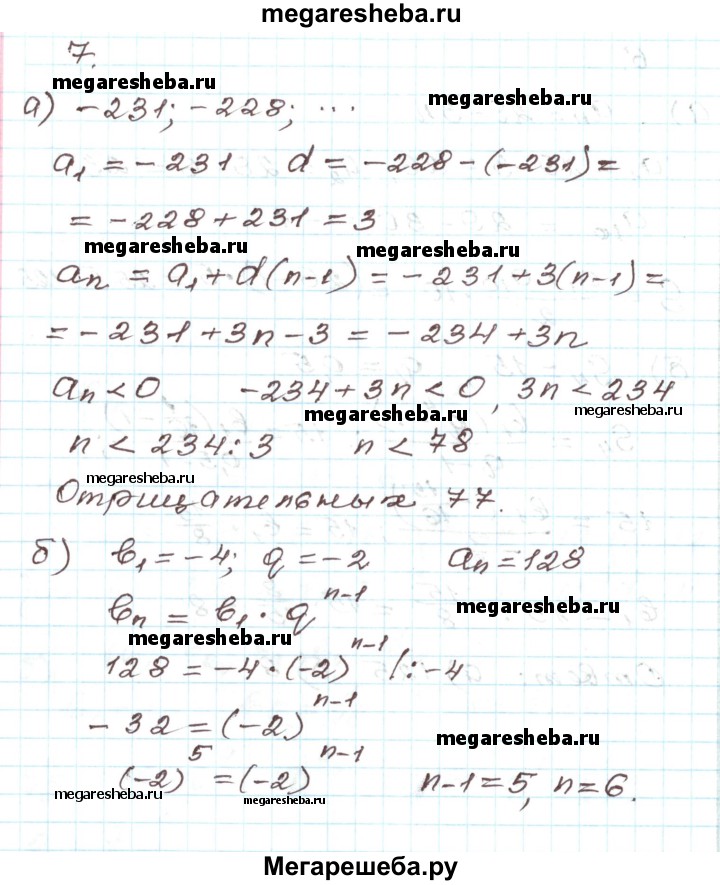 megaresheba.ru
7.
megaresheba.ru
megaresheba.ru
а) -231; -228; ...
a₁ = -231 d = -228-(-231)=
= -228+231 = 3
megaresheba.ru
megaresheba.ru
aₙ = a₁+d(n-1) = -231+3(n-1)=
= -231+3n-3 = -234+3n
aₙ<0 -234+3n<0, 3n<234
megaresheba.ru
megaresheba.ru
n < 234:3 n<78
megaresheba.ru
Отрицательных 77.
б) b₁=-4; q=-2 aₙ=128
bₙ = b₁·qⁿ⁻¹
megaresheba.ru
megaresheba.ru
128 = -4·(-2)ⁿ⁻¹ /:-4
-32 = (-2)ⁿ⁻¹
megaresheba.ru
(-2)⁵ = (-2)ⁿ⁻¹ n-1=5, n=6.
megaresheba.ru
megaresheba.ru
megaresheba.ru
Мегарешеба.ру